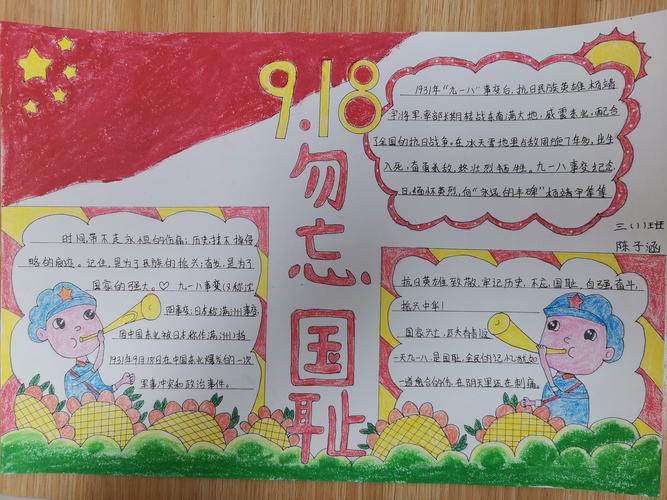 9.18
勿忘国耻
1931年“九一八”事变后,抗日民族英雄杨靖
宇将军率部长期转战东南满大地,威震东北,配合
了全国的抗日战争,在冰天雪地里与敌周旋7年多,出生
入死,奋勇杀敌,终壮烈牺牲。九一八事变纪念
日,缅怀英烈,向“永远的丰碑”杨靖宇
三(1)班
陈子涵
时间,带不走永恒的伤痛;历史,抹不掉侵
略的痕迹。记住,是为了民族的振兴;奋发,是为了
国家的强大。♡九一八事变(又称沈
阳事变;日本称满洲事变,
因中国东北被日本称作满洲)指
1931年9月18日在中国东北爆发的一次
军事冲突和政治事件。
抗日英雄致敬,牢记历史,不忘国耻,自强奋斗,
振兴中华!
国家兴亡,匹夫有责,这
一天九一八,是国耻,全民的记忆,犹如
一道愈合的伤,在阴天里还在刺痛。